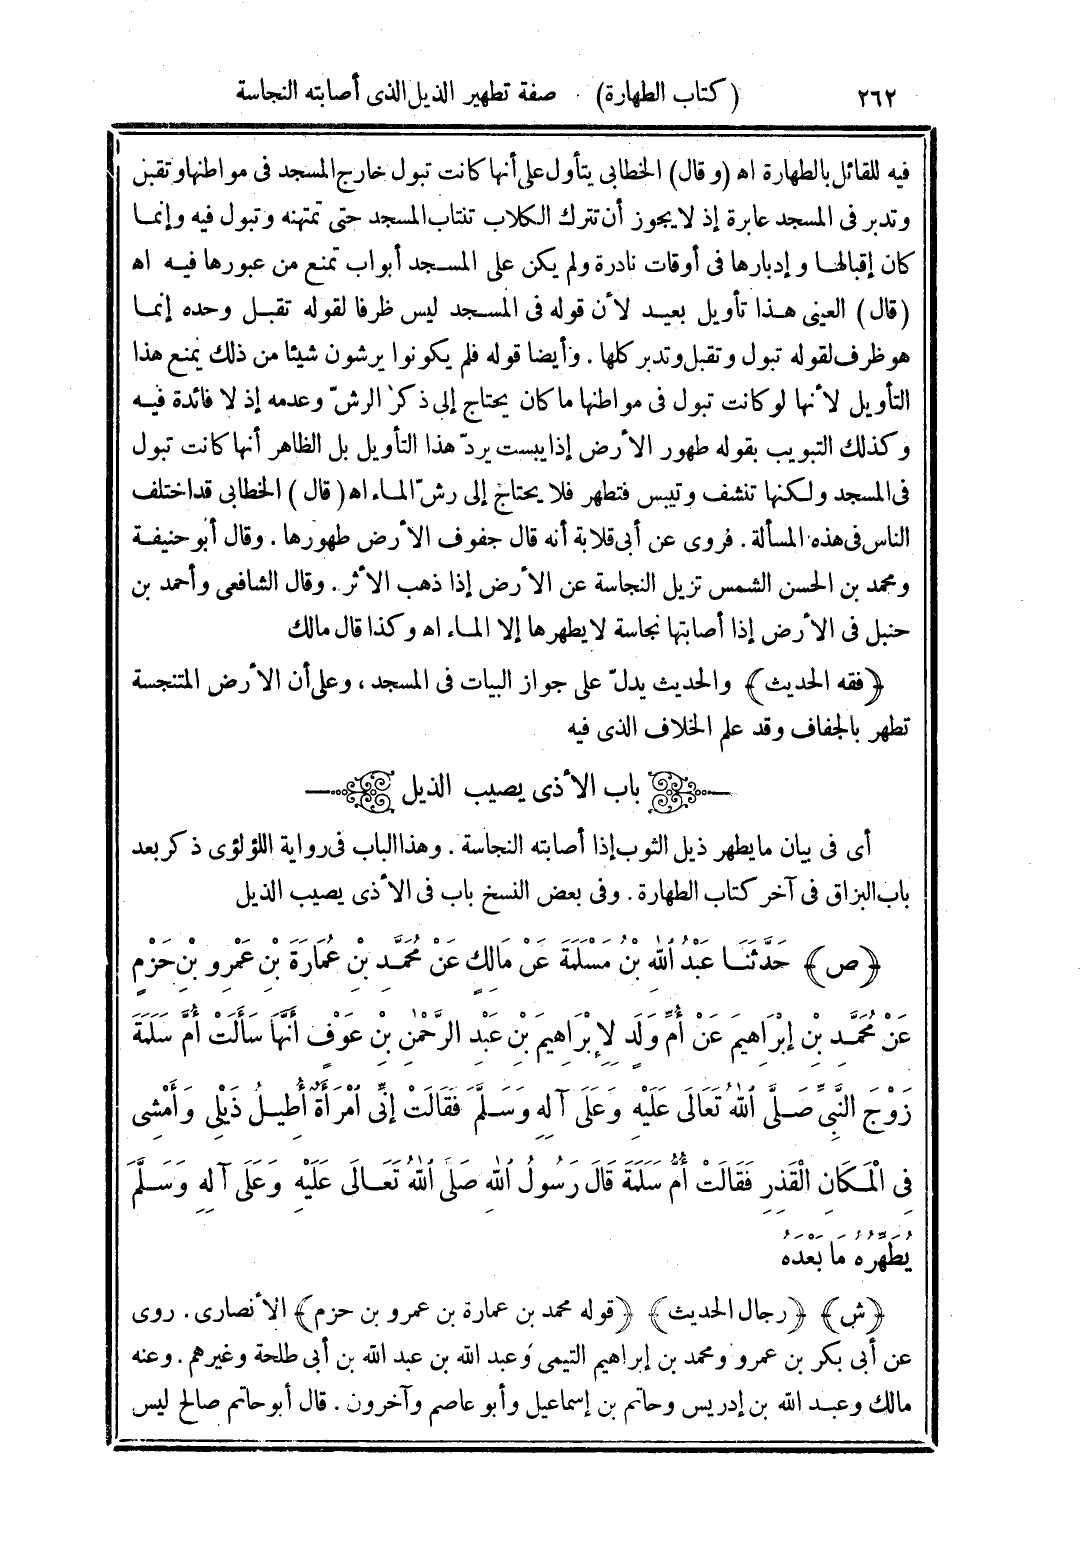 ٢٦٢ (كتاب الطهارة) صفة تطهير الذيل الذى أصابته النجاسة
فيه للقائل بالطهارة اه (وقال) الخطابى يتأول على أنها كانت تبول خارج المسجد فى مواطنها وتقبل
وتدبر فى المسجد عابرة إذ لايجوز أن تترك الكلاب تنتاب المسجد حتى تمتهنه وتبول فيه وإنما
كان إقبالها وإدبارها فى أوقات نادرة ولم يكن على المسجد أبواب تمنع من عبورها فيه اه
(قال) العينى هذا تأويل بعيد لأن قوله فى المسجد ليس ظرفا لقوله تقبل وحده إنما
هو ظرف لقوله تبول وتقبل وتدبر كلها . وأيضا قوله فلم يكونوا يرشون شيئا من ذلك يمنع هذا
التأويل لأنها لو كانت تبول فى مواطنها ما كان يحتاج إلى ذكر الرشّ وعدمه إذ لا فائدة فيه
وكذلك التبويب بقوله طهور الأرض إذا يبست يردّ هذا التأويل بل الظاهر أنها كانت تبول
فى المسجد ولكنها تنشف وتيبس فتطهر فلا يحتاج إلى رشّ الماء اه (قال) الخطابى قد اختلف
الناس فى هذه المسألة . فروى عن أبى قلابة أنه قال جفوف الأرض طهورها . وقال أبو حنيفة
ومحمد بن الحسن الشمس تزيل النجاسة عن الأرض إذا ذهب الأثر . وقال الشافعى وأحمد بن
حنبل فى الأرض إذا أصابتها نجاسة لايطهرها إلا الماء اه وكذا قال مالك
﴿فقه الحديث﴾ والحديث يدلّ على جواز البيات فى المسجد ، وعلى أن الأرض المتنجسة
تطهر بالجفاف وقد علم الخلاف الذى فيه
باب الأذى يصيب الذيل
أى فى بيان ما يطهر ذيل الثوب إذا أصابته النجاسة . وهذا الباب فى رواية اللؤلؤى ذكر بعد
باب البزاق فى آخر كتاب الطهارة . وفى بعض النسخ باب فى الأذى يصيب الذيل
﴿ص﴾ حَدَّثَنَا عَبْدُ اللهِ بْنُ مَسْلَمَةَ عَنْ مَالِكٍ عَنْ مُحَمَّدِ بْنِ عُمَارَةَ بْنِ عَمْرِو بْنِ حَزْمٍ
عَنْ مُحَمَّدِ بْنِ إِبْرَاهِيمَ عَنْ أُمِّ وَلَدٍ لِإِبْرَاهِيمَ بْنِ عَبْدِ الرَّحْمٰنِ بْنِ عَوْفٍ أَنَّهَا سَأَلَتْ أُمَّ سَلَمَةَ
زَوْجَ النَّبِيِّ صَلَّى اللهُ تَعَالَى عَلَيْهِ وَعَلَى آلِهِ وَسَلَّمَ فَقَالَتْ إِنِّى امْرَأَةٌ أُطِيلُ ذَيْلِى وَأَمْشِى
فِى الْمَكَانِ الْقَذِرِ فَقَالَتْ أُمُّ سَلَمَةَ قَالَ رَسُولُ اللهِ صَلَّى اللهُ تَعَالَى عَلَيْهِ وَعَلَى آلِهِ وَسَلَّمَ
يُطَهِّرُهُ مَا بَعْدَهُ
﴿ش﴾ ﴿رجال الحديث﴾ ﴿قوله محمد بن عمارة بن عمرو بن حزم﴾ الأنصارى . روى
عن أبى بكر بن عمرو ومحمد بن إبراهيم التيمى وعبد الله بن عبد الله بن أبى طلحة وغيرهم . وعنه
مالك وعبد الله بن إدريس وحاتم بن إسماعيل وأبو عاصم وآخرون . قال أبو حاتم صالح ليس